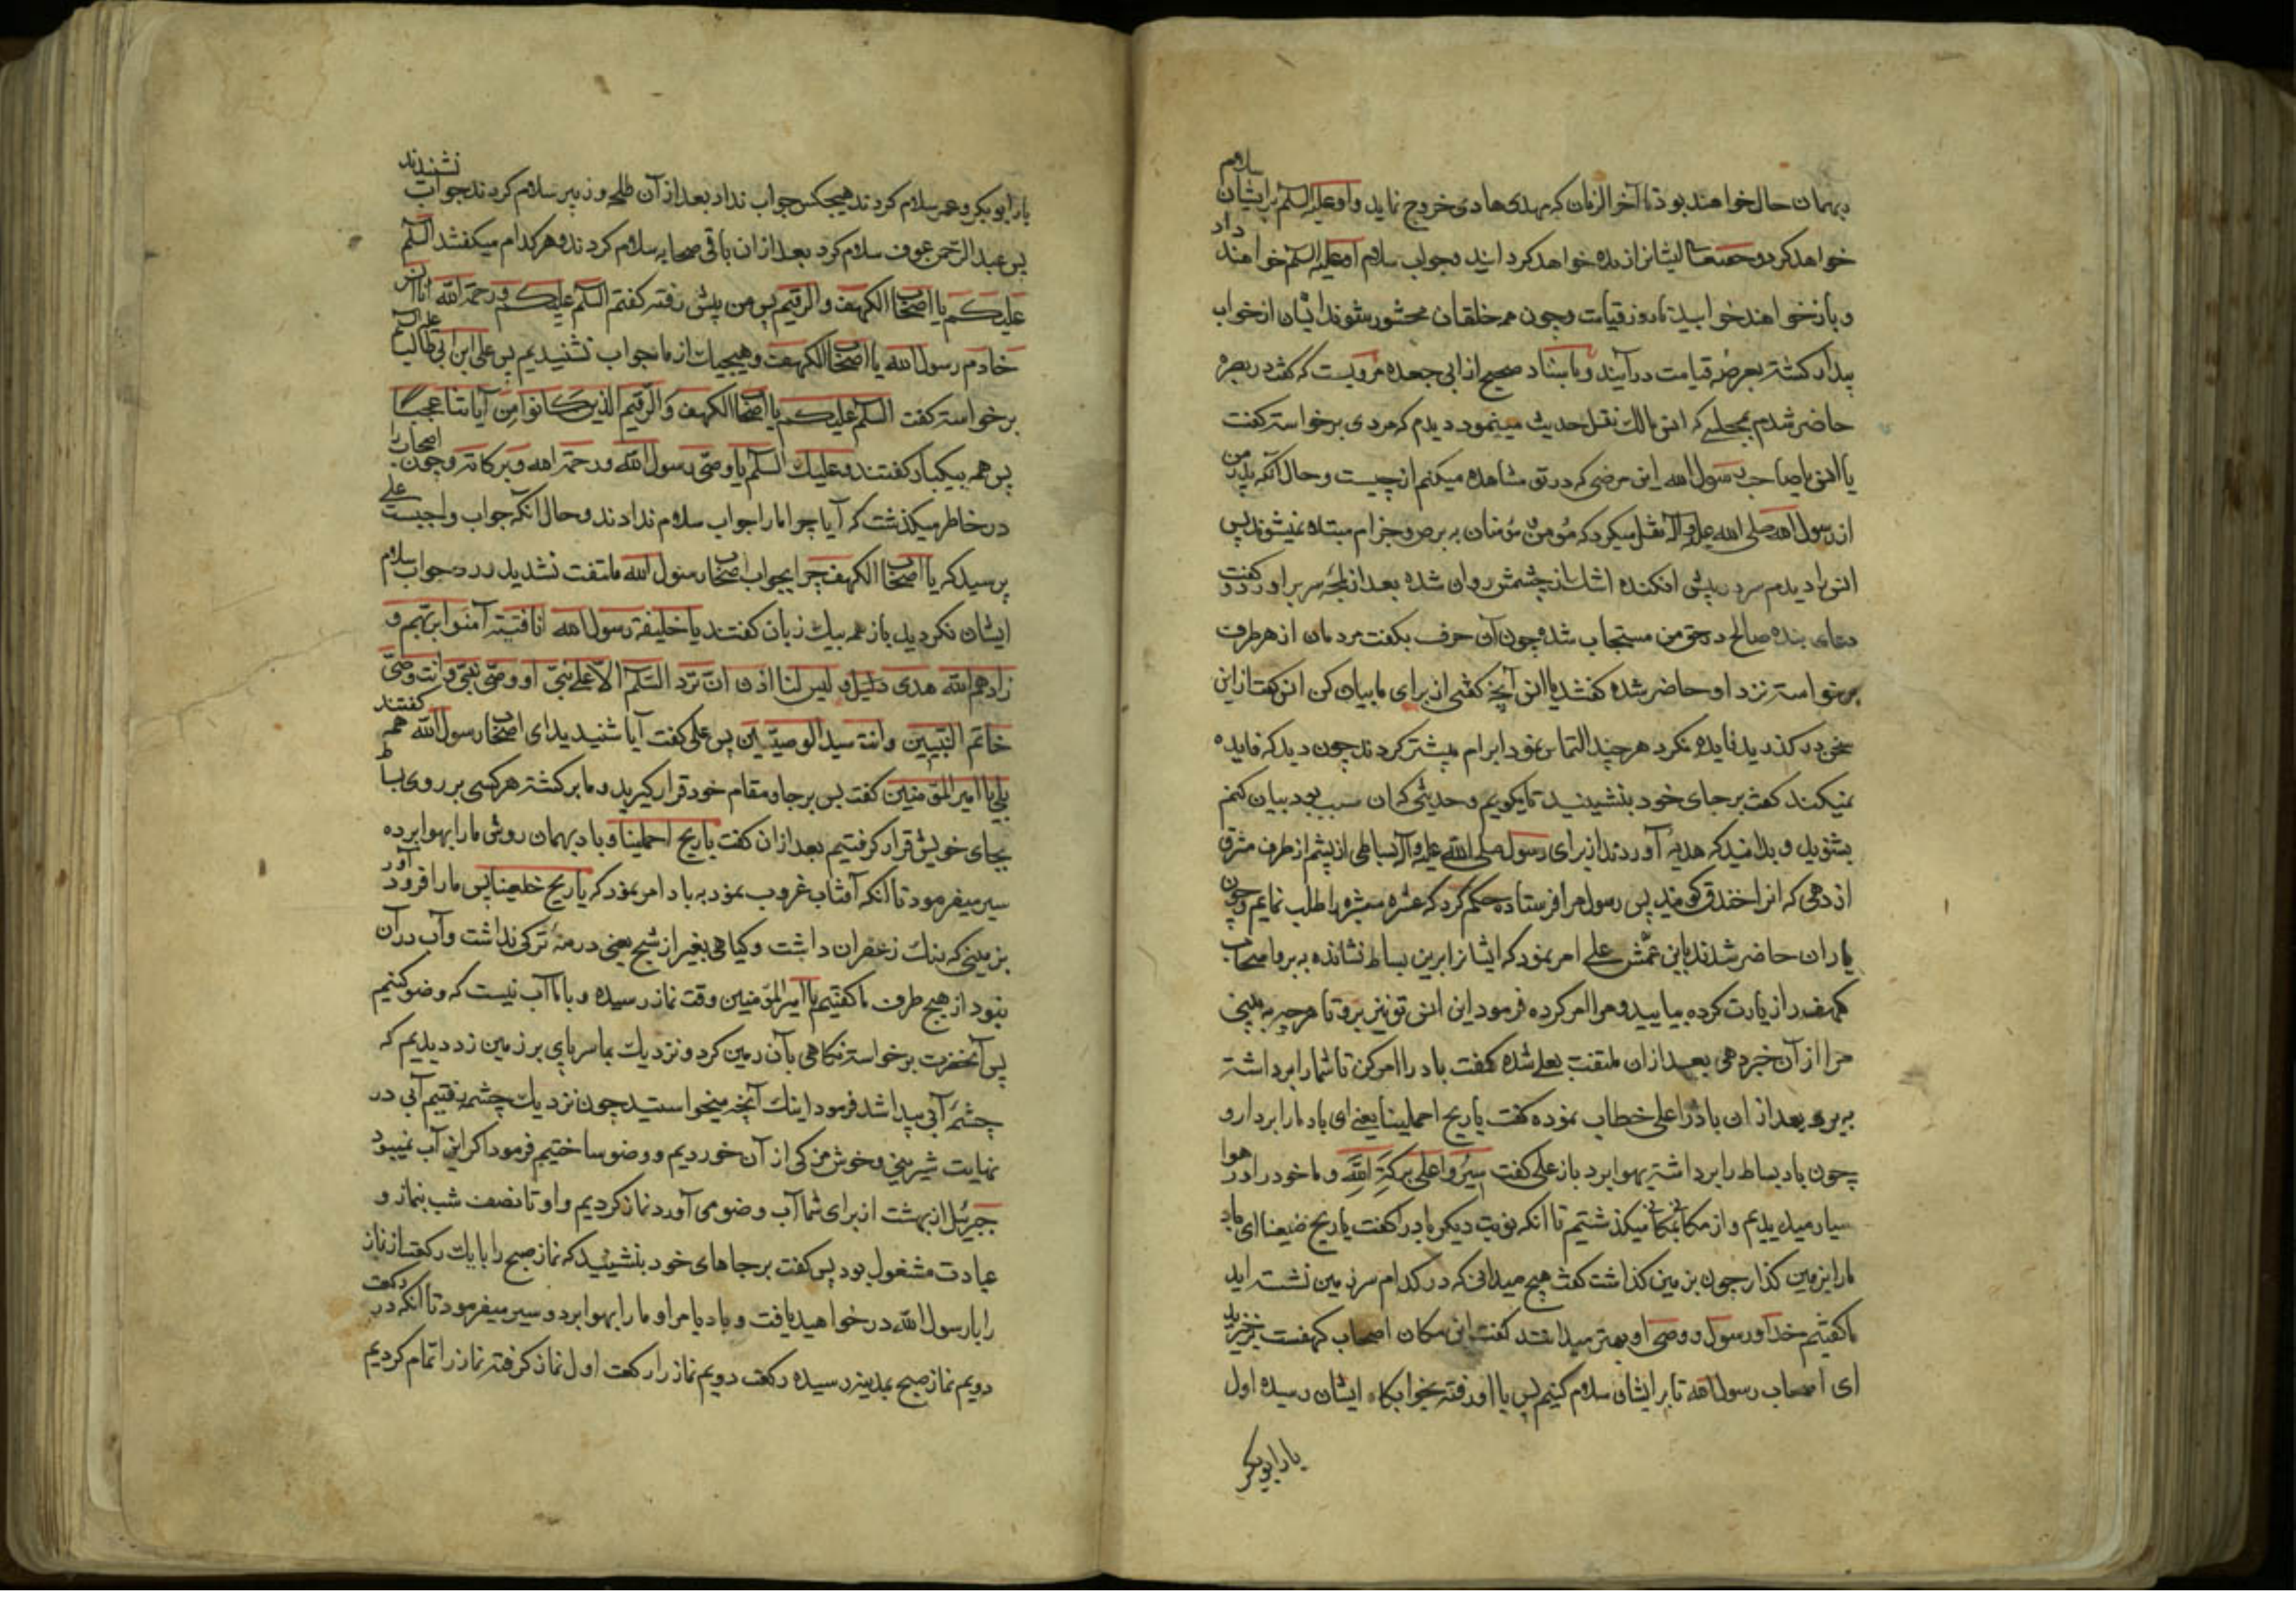 بهمان حال خواهند بود تا آخر الزمان که مهدی هادی خروج نماید و او علیه السلم بر ایشان سلام
خواهد کرد و حقتعالی ایشانرا زنده خواهد گردانید و جواب سلام او علیه السلم خواهند داد
و باز خواهند خوابید تا روز قیامت و چون همه خلقان محشور شوند ایشان از خواب
بیدار کشته بعرصه قیامت در آیند و باسناد صحیح از ابی جعده مرویست که کفت در بصره
حاضر شدم بمجلسی که انس مالک نقل حدیث مینمود دیدم که مردی برخواسته کفت
یا انس یا صاحب رسول الله این مرضی که در تو مشاهده میکنم از چیست و حال آنکه پدر من
از رسول الله صلی الله علیه و آله نقل میکرد که مؤمن مؤمنان به برص و جزام مبتلا نمیشوند پس
انس را دیدم سر در پیش افکنده اشک از چشمش روان شده بعد از لمحه سر بر اورد و کفت
دعای بنده صالح در حق من مستجاب شده چون آن حرف بکفت مردمان از هر طرف
برخواسته نزد او حاضر شده کفتند یا انس آنچه کفتی از برای ما بیان کن انس کفت از این
سخن در کذرید فایده نکرد هر چند التماس نمود ابرام بیشتر کردند چون دید که فایده
نمیکند کفت بر جای خود بنشینید تا بکویم و حدیثی که آن سبب بود بیان کنم
بشنوید و بدانید که هدیه آوردند از برای رسول صلی الله علیه و آله بساطی از پشم از طرف مشرق
از دهی که انرا خندق کویند پس رسول مرا فرستاده حکم کرد که عشره مبشره را طلب نمایم و چون
یاران حاضر شدند باین عمش علی امر نمود که ایشانرا برین بساط نشانده به برو اصحاب
کهف را زیارت کرده بیایید و مرا امر کرده فرمود این انس تو نیز برو تا هر چیز به بینی
مرا از آن خبر دهی بعد از ان ملتفت بعلی شده کفت باد را امر کن تا شما را برداشته
به برد بعد از ان باد را علی خطاب نموده کفت یا ریح احملینا یعنی ای باد ما را بردار و
چون باد بساط را برداشته بهوا برد باز علی کفت سیروا علی برکة الله و ما خود را در هوا
سیار میدیدیم و از مکانی بمکانی میکذشتیم تا انکه نوبت دیکر باد را کفت یا ریح ضیعنا ای باد
ما را بزمین کذار چون بزمین کذاشت کفت هیچ میدانی که در کدام سرزمین نشسته اید
ما کفتیم خدا و رسول و وصی او بهتر میدانند کفت این مکان اصحاب کهفست برخیزید
ای اصحاب رسول الله تا بر ایشان سلام کنیم پس با او رفته بخوابکاه ایشان رسیده اول
یار ابوبکر
یار ابوبکر و عمر سلام کردند هیچکس جواب نداد بعد از آن طلحه و زبیر سلام کردند جواب نشنیدند
پس عبد الرحمن عوف سلام کرد بعد از ان باقی صحابه سلام کردند و هر کدام میکفتند السلم
علیکم یا اصحاب الکهف و الرقیم پس من پیش رفته کفتم السلم علیکم و رحمة الله انا انس
خادم رسول الله یا اصحاب الکهف و هیچیک از ما جواب نشنیدیم پس علی ابن ابی طالب علیه السلم
برخواسته کفت السلم علیکم یا اصحاب الکهف و الرقیم الذین کانوا من آیاتنا عجبا
پس همه بیکبار کفتند و علیک السلم یا وصی رسول الله و رحمة الله و برکاته و چون اصحاب را
در خاطر میکذشت که آیا چرا ما را جواب سلام ندادند و حال انکه جواب واجبست علی
پرسید که یا اصحاب الکهف چرا بجواب اصحاب رسول الله ملتفت نشدید و رد جواب سلام
ایشان نکردید باز همه بیک زبان کفتند یا خلیفة رسول الله انا فتیة آمنوا بربهم و
زادهم الله هدی دلیل و لیس لنا اذن ان نرد السلم الا علی نبی او وصی نبی و انت وصی
خاتم النبیین و انت سید الوصیین پس علی کفت آیا شنیدید ای اصحاب رسول الله همه کفتند
بلی یا امیر المؤمنین کفت پس بر جا و مقام خود قرار کیرید و ما برکشته هر کسی بر روی بساط
بجای خویش قرار کرفتیم بعد از ان کفت یا ریح احملینا و باد بهمان روش ما را بهوا برده
سیر میفرمود تا آنکه آفتاب غروب نمود به باد امر نمود که یا ریح خلعینا پس ما را فرود آورد
بزمینی که رنک زعفران داشت و کیاهی بغیر از شیح یعنی درمنه ترکی نداشت و آب در آن
نبود از هیچ طرف ما کفتیم یا امیر المؤمنین وقت نماز رسیده و با ما آب نیست که وضو کنیم
پس آنحضرت برخواسته نکاهی بآن زمین کرد و نزدیک بما سر پای بر زمین زد دیدیم که
چشمه آبی پیدا شد فرمود اینک آنچه میخواستید چون نزدیک چشمه رفتیم آبی در
نهایت شیرینی و خوش مزکی از آن خوردیم و وضو ساختیم فرمود اکر این آب نمیبود
جبرئیل از بهشت از برای شما آب وضو می آورد نماز کردیم و او تا نصف شب بنماز و
عبادت مشغول بود پس کفت بر جاهای خود بنشینید که نماز صبح را با یک رکعت از نماز
را با رسول الله در خواهید یافت و باد بامر او ما را بهوا برد و سیر میفرمود تا آنکه در رکعت
دویم نماز صبح بمدینه رسیده رکعت دویم نماز را رکعت اول نماز کرفته نماز را تمام کردیم